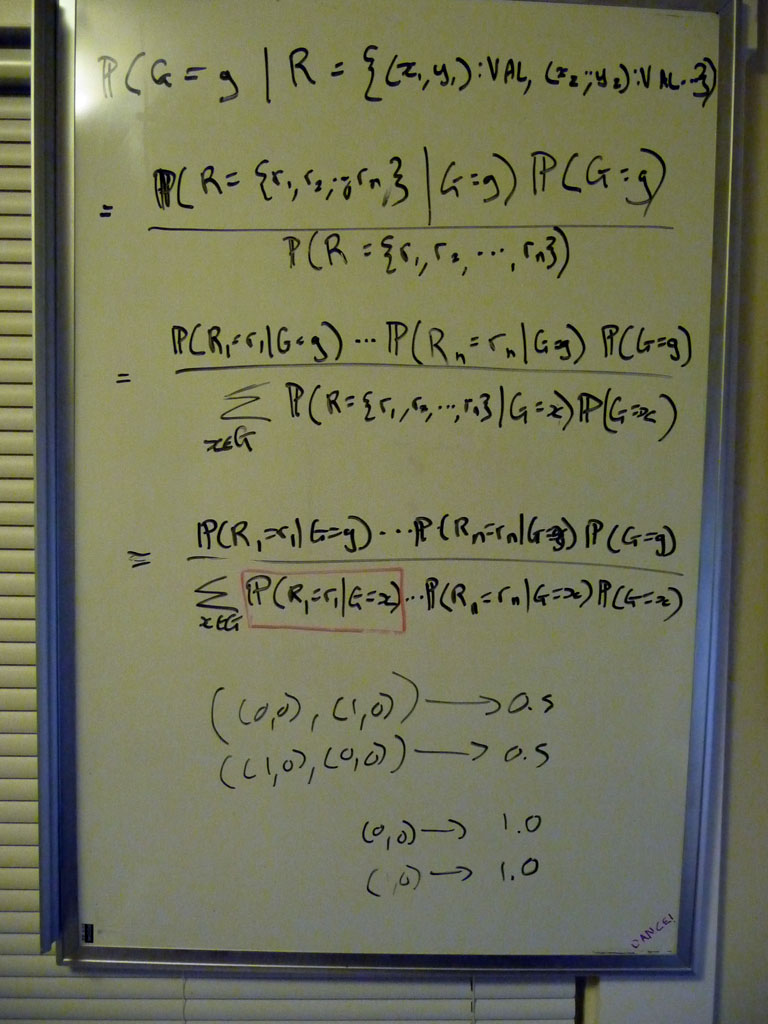 ℙ(G=g | R = {(x₁,y₁):VAL, (x₂,y₂):VAL...})
= ℙ(R={r₁,r₂,...,rₙ} | G=g) ℙ(G=g)
ℙ(R={r₁,r₂,...,rₙ})
= ℙ(R₁=r₁|G=g) ... ℙ(Rₙ=rₙ|G=g) ℙ(G=g)
∑ ℙ(R={r₁,r₂,...,rₙ} | G=x) ℙ(G=x)
x∈G
= ℙ(R₁=r₁|G=g) ... ℙ(Rₙ=rₙ|G=g) ℙ(G=g)
∑ ℙ(R₁=r₁|G=x) ... ℙ(Rₙ=rₙ|G=x) ℙ(G=x)
x∈G
((0,0),(1,0)) → 0.5
((1,0),(0,0)) → 0.5
(0,0) → 1.0
(1,0) → 1.0
DANCE!